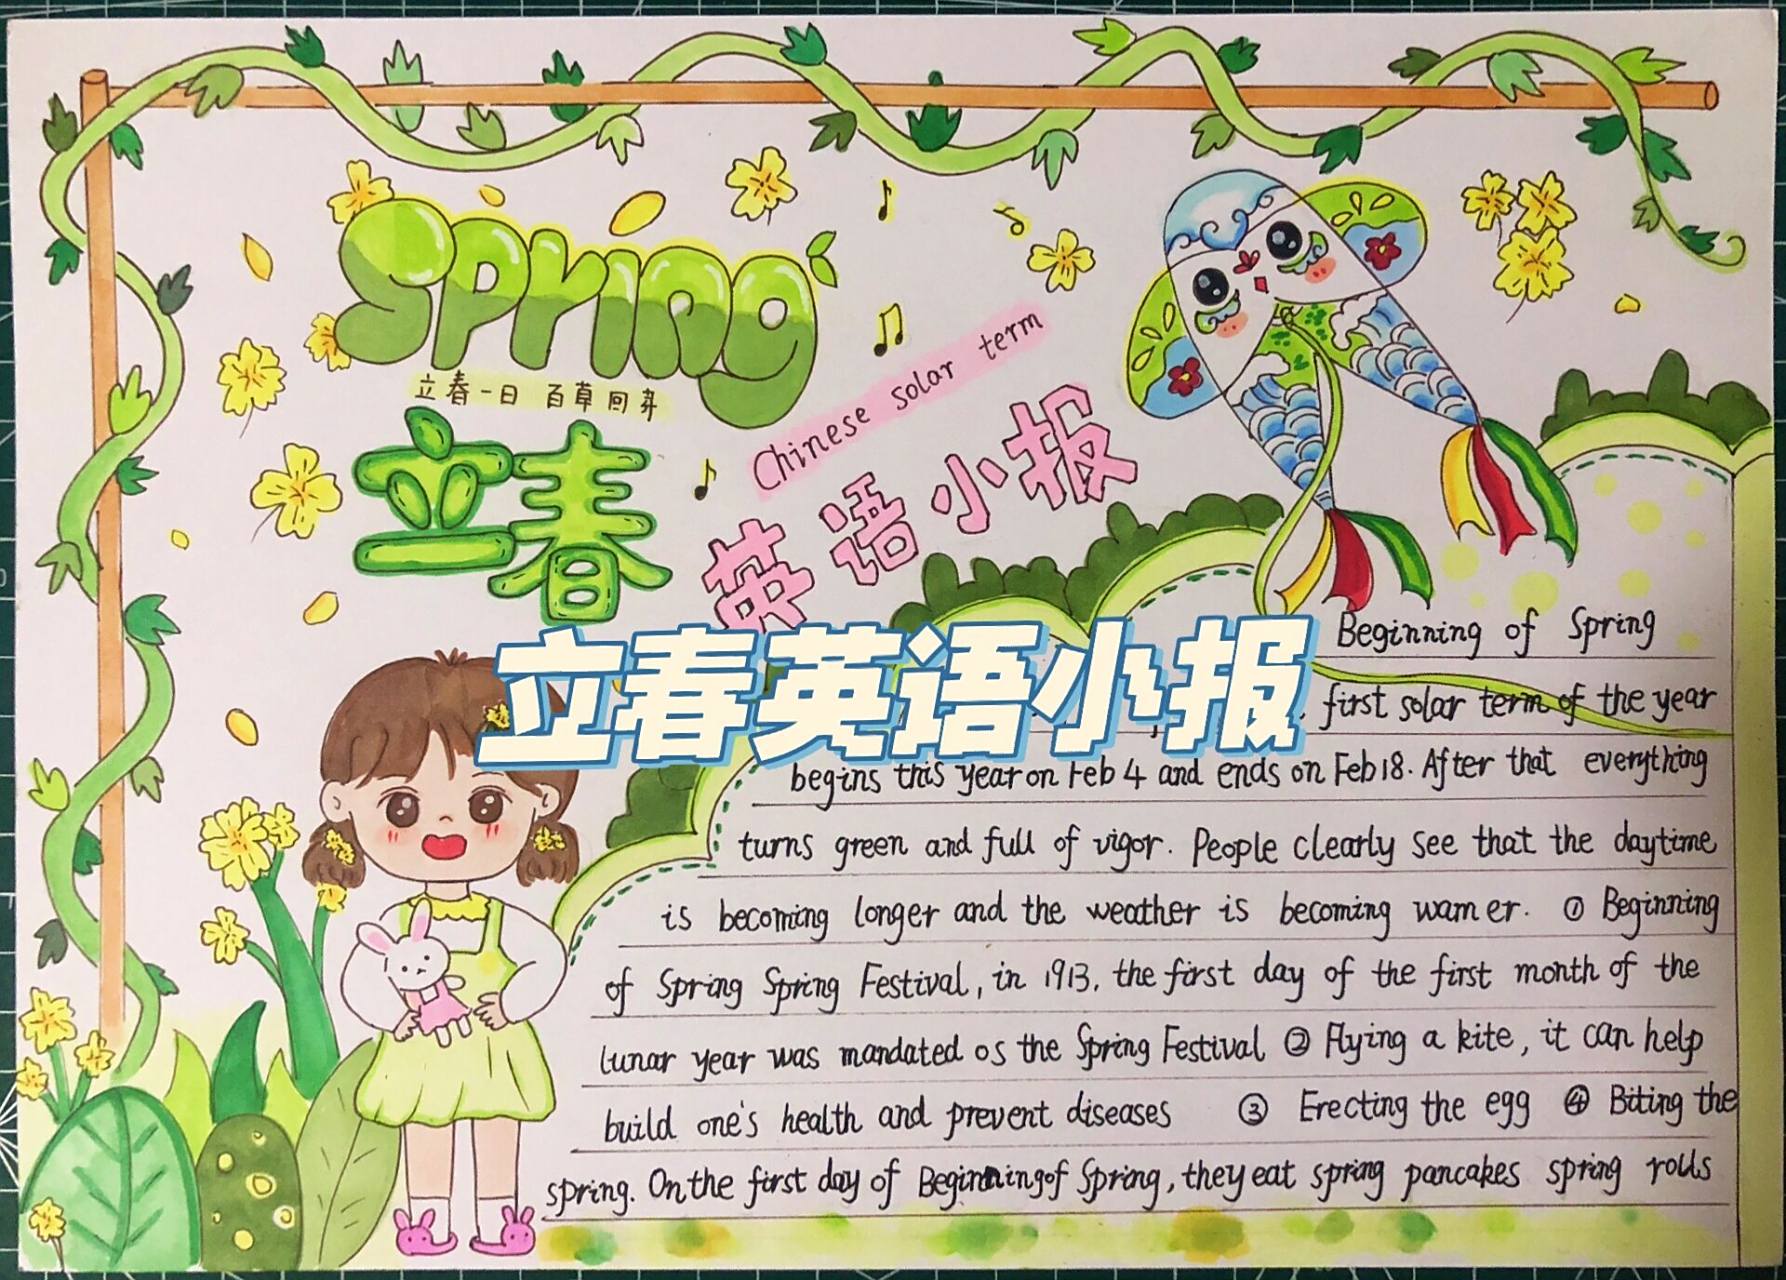 Spring
立春一日 百草回芽
立春
Chinese solar term
英语小报
立春英语小报
Beginning of Spring
first solar term of the year
begins this year on Feb 4 and ends on Feb 18. After that everything
turns green and full of vigor. People clearly see that the daytime
is becoming longer and the weather is becoming warner. ① Beginning
of Spring Spring Festival, in 1913, the first day of the first month of the
lunar year was mandated os the Spring Festival ② Flying a kite, it can help
build one's health and prevent diseases ③ Erecting the egg ④ Biting the
spring. On the first day of Beginning of Spring, they eat spring pancakes spring rolls